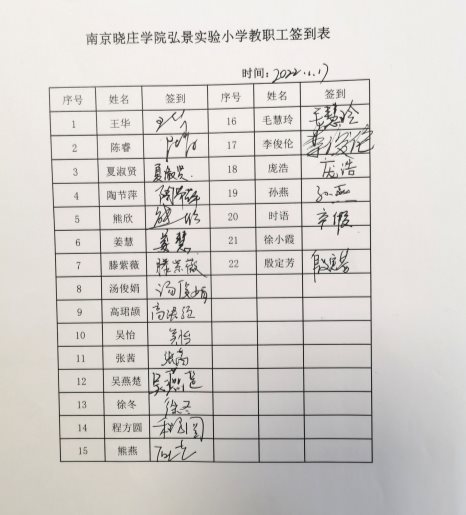 南京晓庄学院弘景实验小学教职工签到表
时间：2022.1.17
序号 姓名 签到 序号 姓名 签到
1 王华 16 毛慧玲 毛慧玲
2 陈睿 17 李俊伦 李俊伦
3 夏淑贤 夏淑贤 18 庞浩 庞浩
4 陶节萍 陶节萍 19 孙燕 孙燕
5 熊欣 20 时语 辛假
6 姜慧 姜慧 21 徐小霞
7 滕紫薇 滕紫薇 22 殷定芳 殷定芳
8 汤俊娟 汤俊娟
9 高珺颉
10 吴怡 吴怡
11 张茜 张茜
12 吴燕楚 吴燕楚
13 徐冬 徐冬
14 程方圆 程方圆
15 熊燕